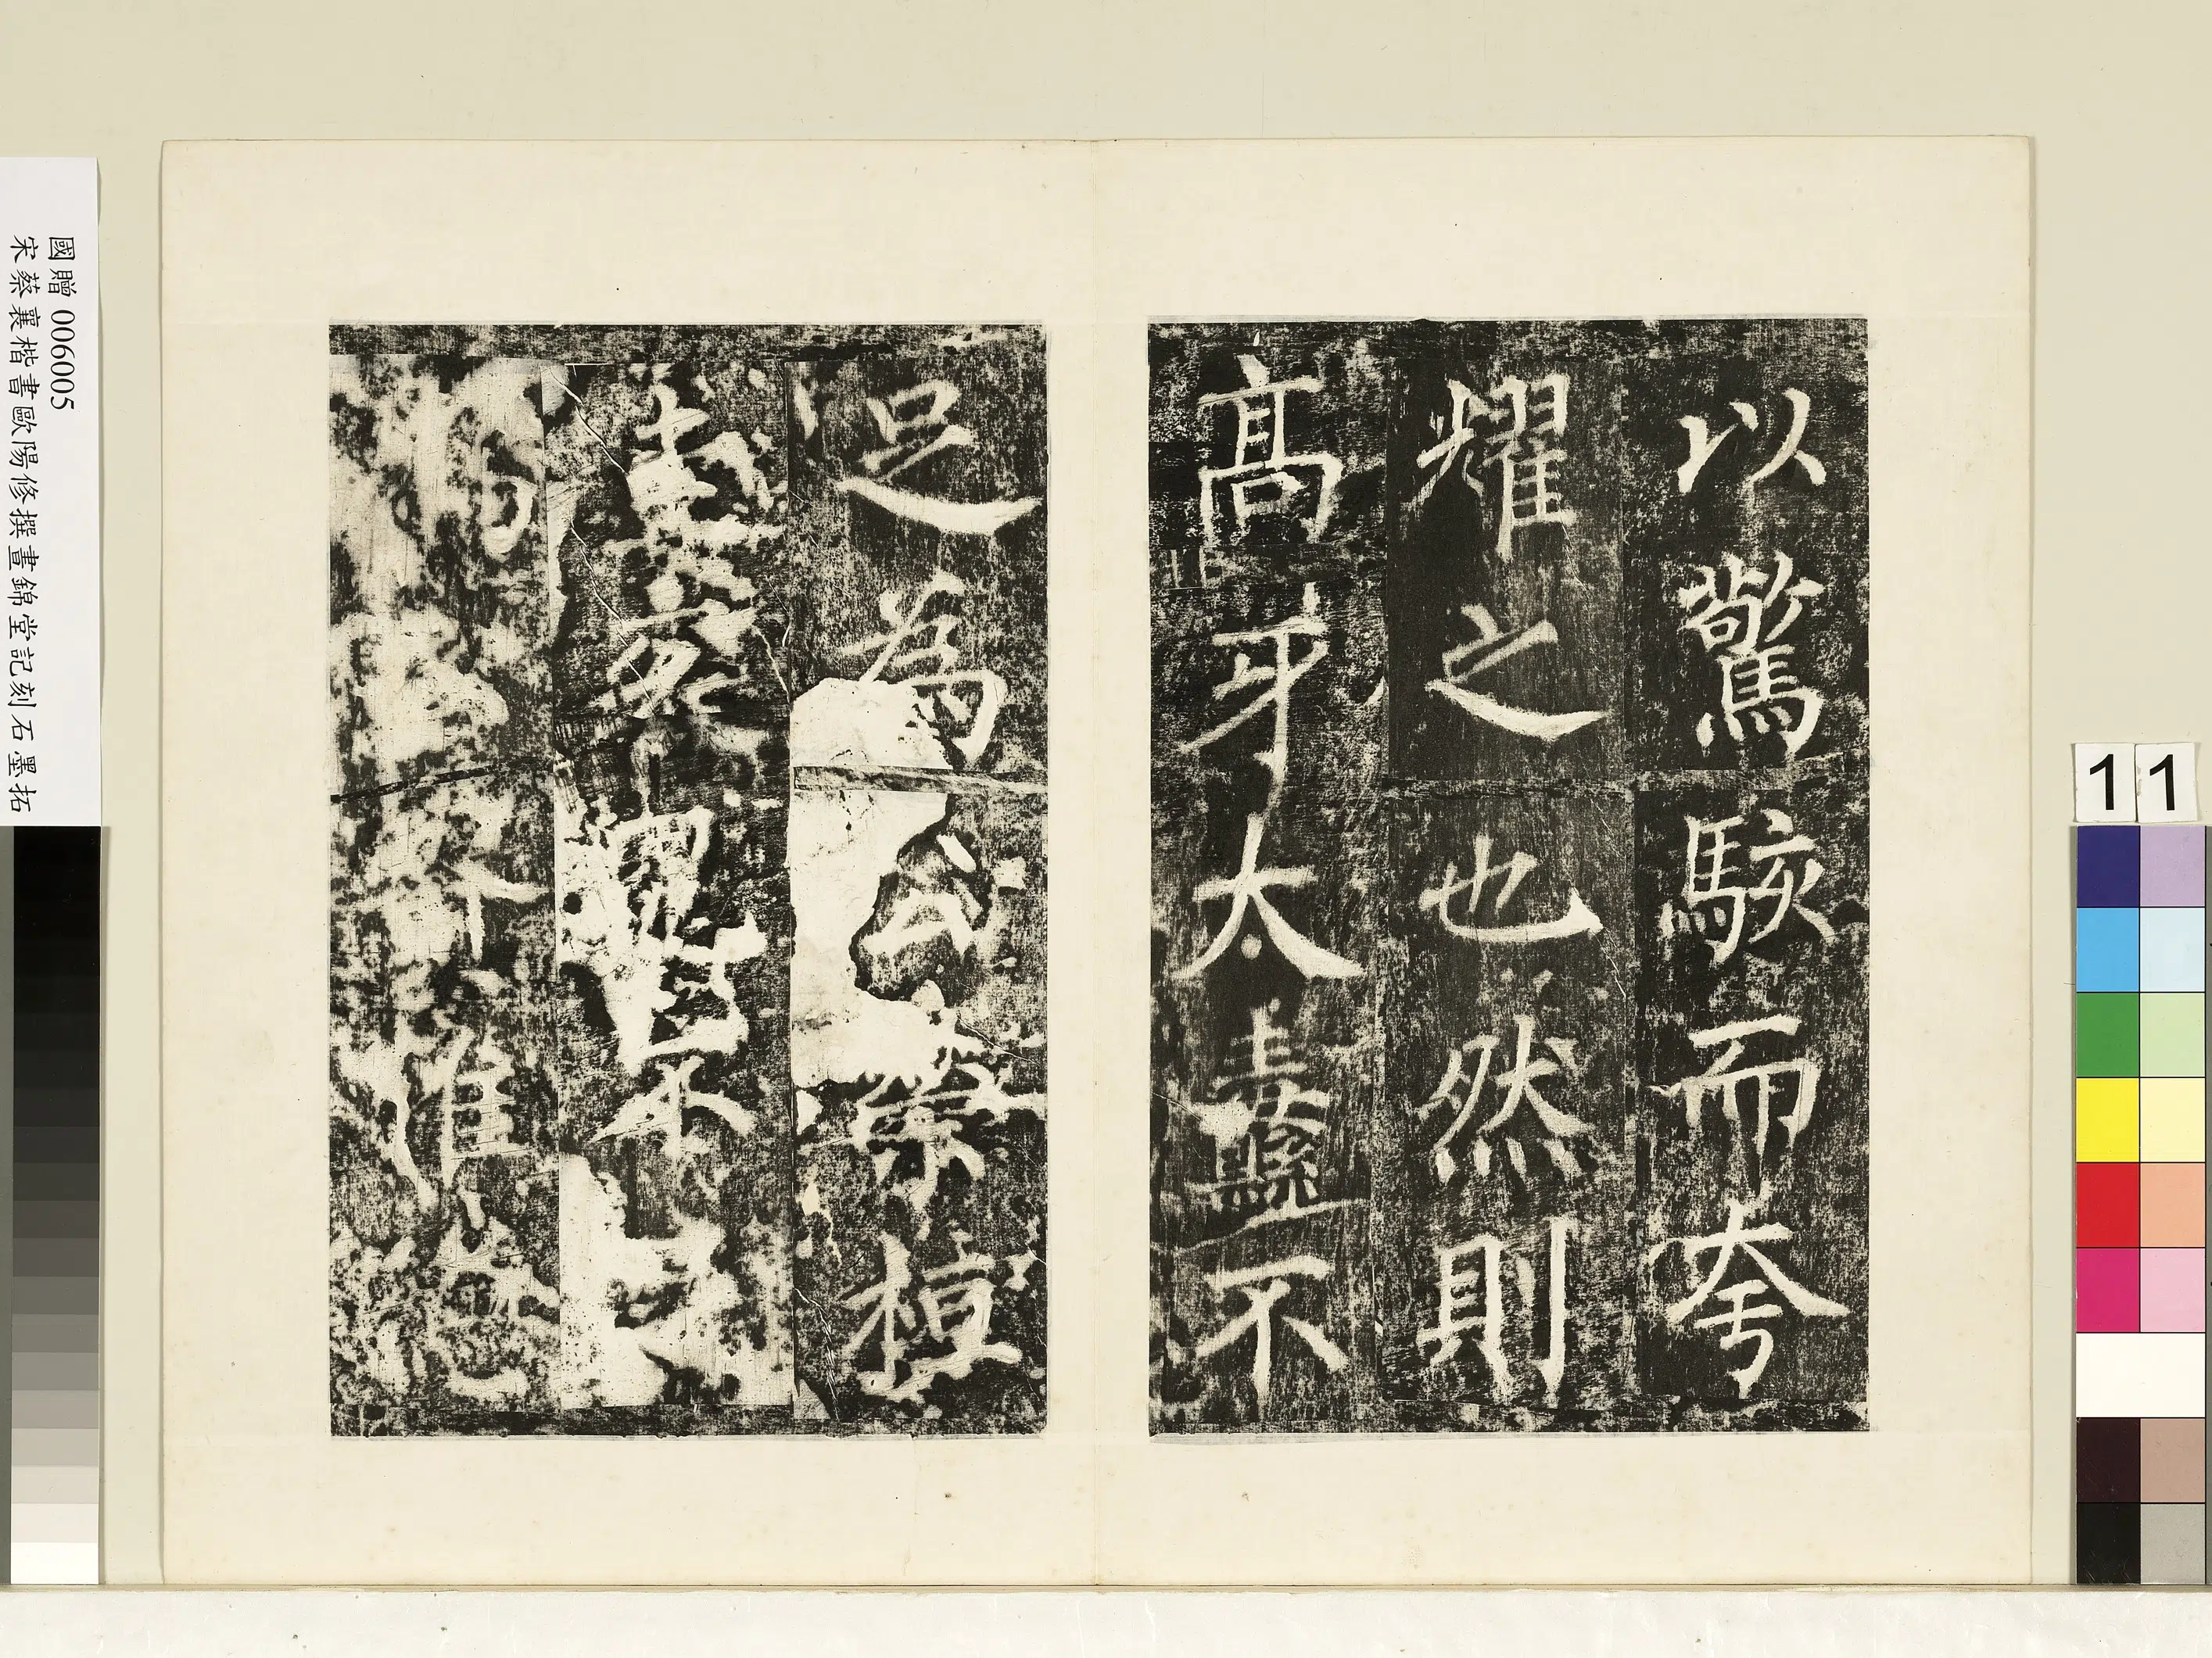 以驚駭而夸
耀之也然則
高牙大纛不
足為公榮桓
圭袞冕不
惟
國贈 006005
宋蔡襄楷書歐陽修撰晝錦堂記刻石墨拓
11